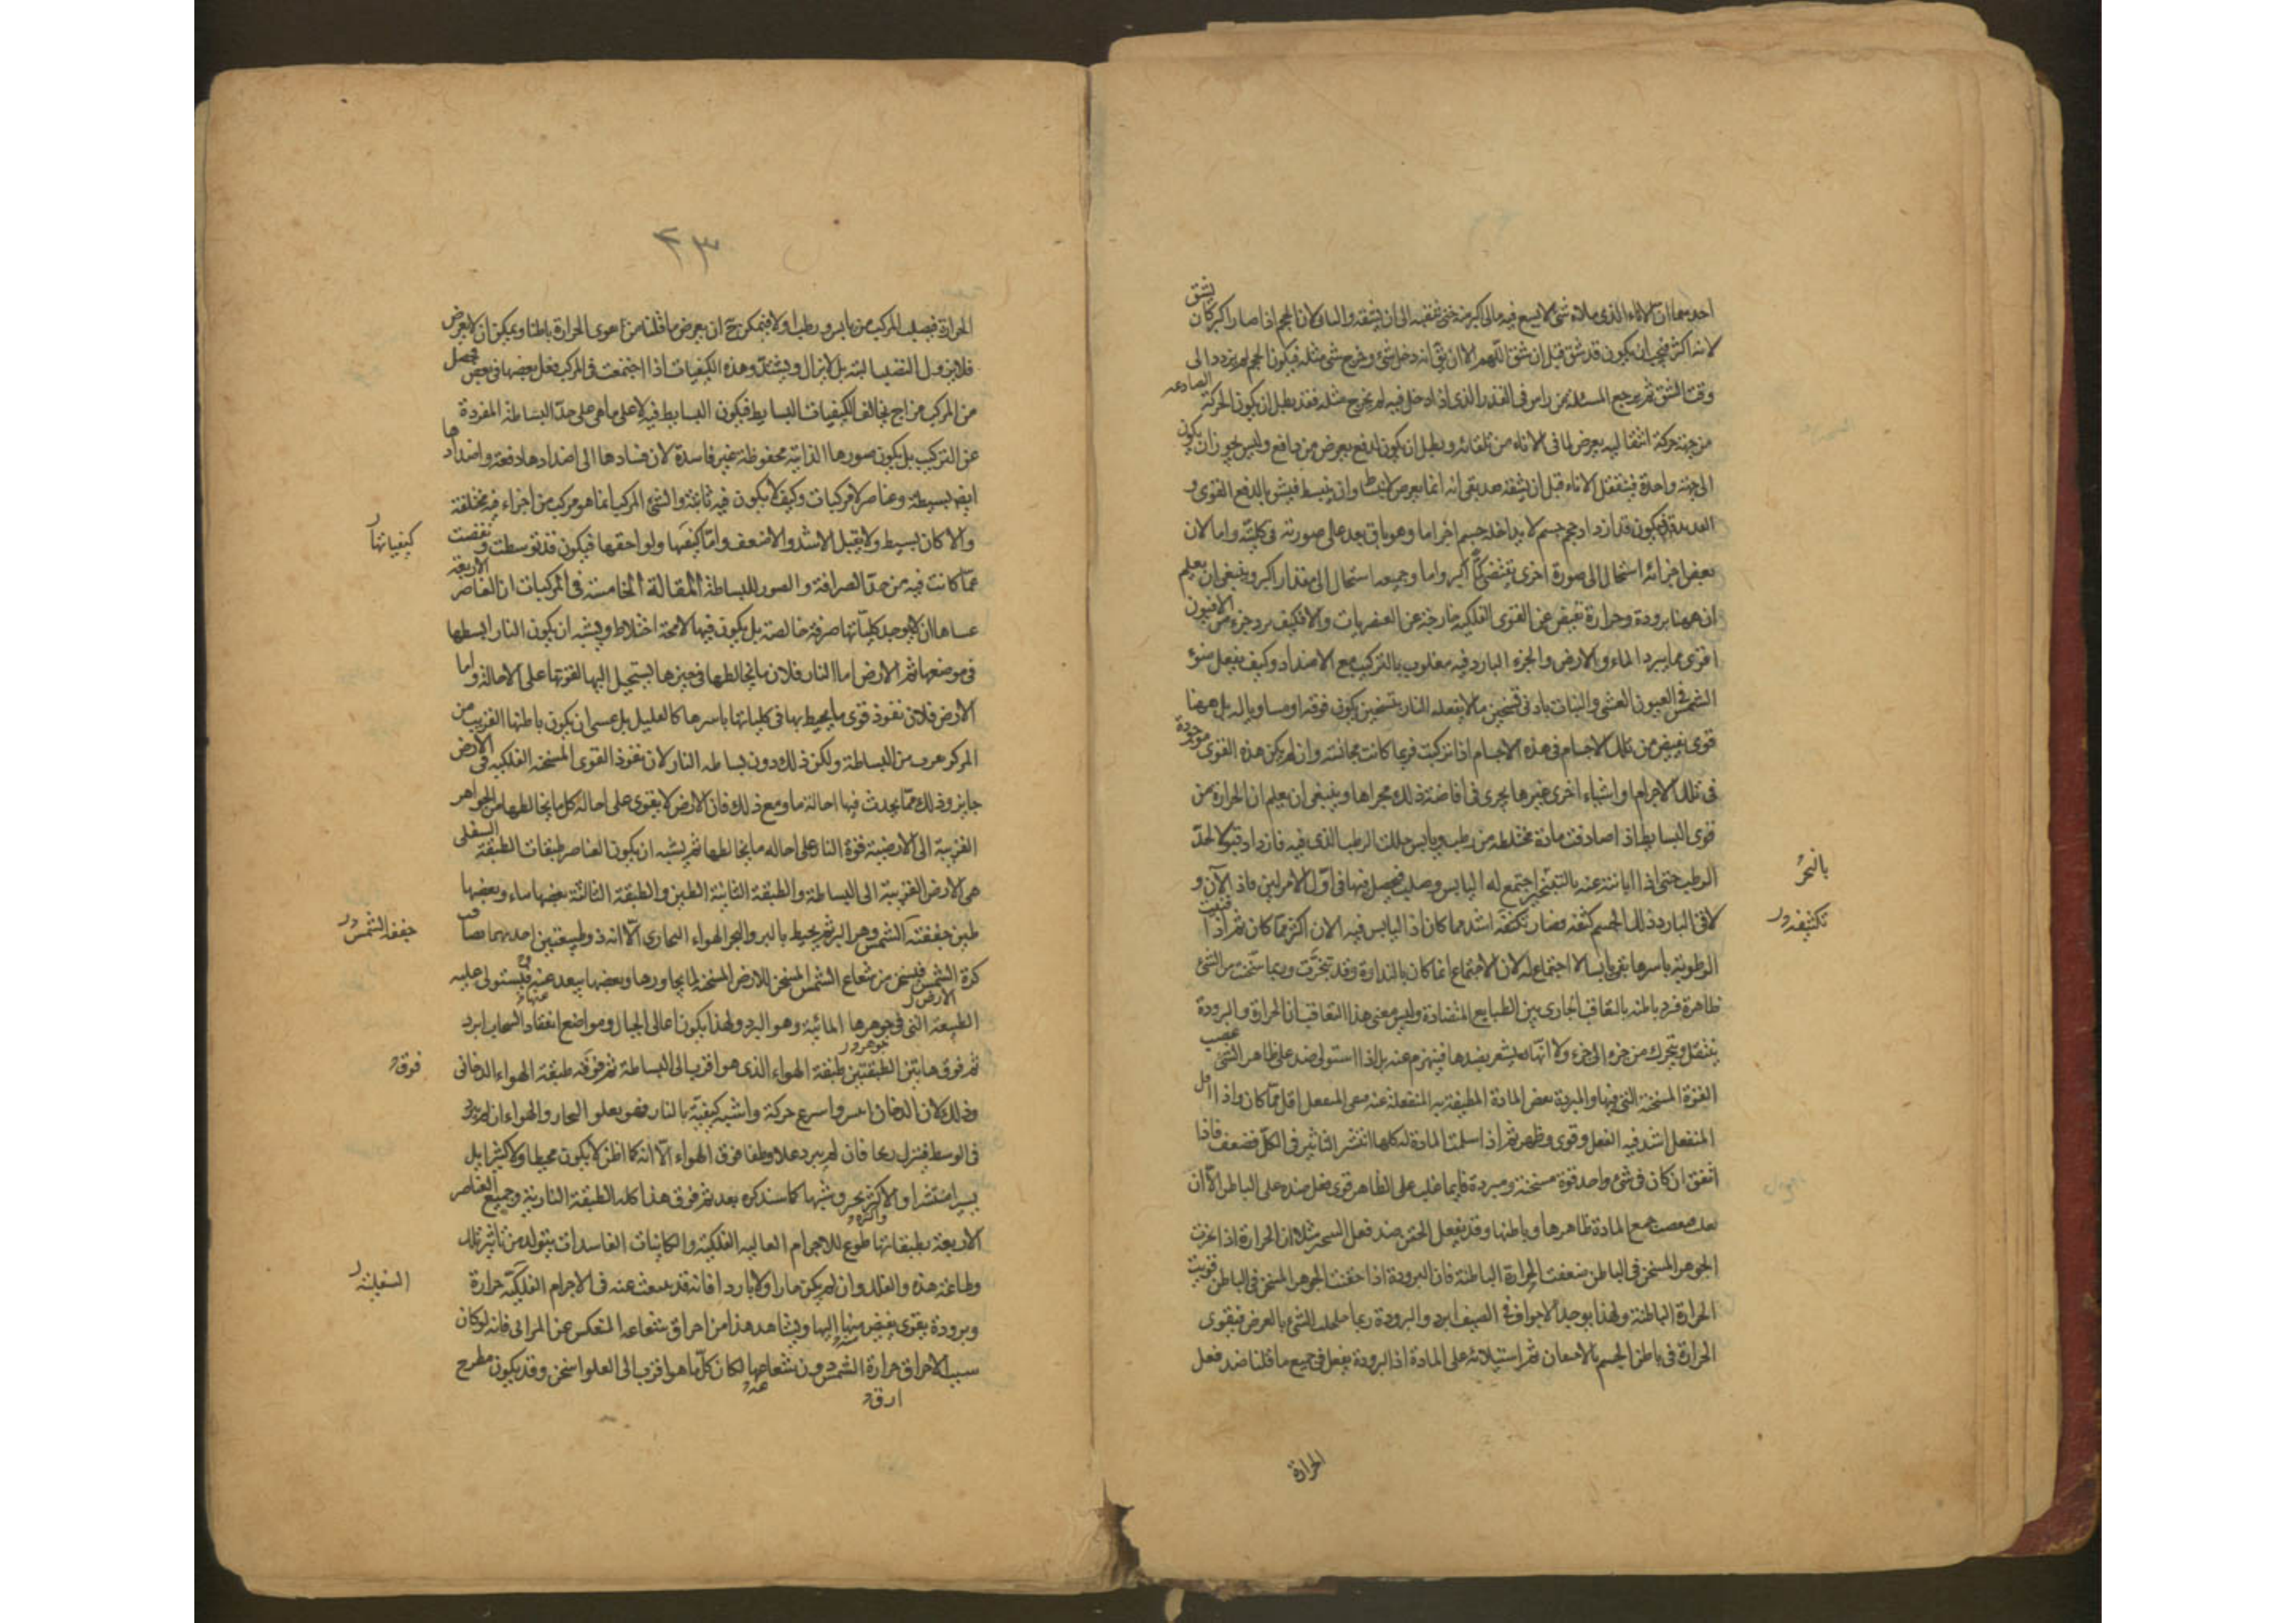 احديهما ان الاناء الذى ملاه شئ لا يسع فيه مالى اكبر منه حتى تعقبه الى ان يشقه والثانى لان الحجم اذا صار اكبر كان
يشق
لانه اكثر فيجب ان يكون قد شق قبل ان شق اللهم الا ان يق انه دخل شئ وخرج شئ مثله فيكون الحجم لم يزدد الى
وقت الشق ثم يرجع المسئلة من راس فى القدر الذى اذا دخل فيه لم يخرج مثله فقد بطل ان يكون الحركة الصادعه
من جهة حركة انتقاليه يعرض لما فى الاناء من تلقائه وبطل ان يكون لدفع يعرض من دافع وليس يجوز ان يكون
الى جهة واحدة فينتقل الاناء قبل ان يشقه فقد بقى انه انما يعرض لانبساط وان ينبسط فيشق بالدفع القوى و
التمديد فيكون قد ازداد حجم جسم لا بمداخلة جسم اخر اما وهو باق بعد على صورته فى كليته واما لان
بعض اجزائه استحال الى صورة اخرى تقتضى كما اكبر واما وجميعه استحال الى مقدار اكبر وينبغى ان يعلم
ان ههنا برودة وحرارة تفيض عن القوى الفلكية خارجة عن العنصريات والا فكيف يبرد جزء من الافيون
اقوى مما يبرد الماء والارض والجزء البارد فيه مغلوب بالتركيب مع الاضداد وكيف يفعل ضوء
الشمس فى العيون العشى والنبات بادنى تسخين ما لا يفعله النار بتسخين يكون فوقه او مساويا له بل ههنا
قوى تفيض من تلك الاجسام فى هذه الاجسام اذا تركبت فربما كانت مجانسة وان لم يكن هذه القوى موجودة
فى تلك الاجرام واشياء اخرى غيرها يجرى فى افاضة ذلك مجراها وينبغى ان يعلم ان الحرارة من
قوى البسايط اذا صادفت مادة مختلطه من رطب ويابس حللت الرطب الذى فيه فازداد قبولا لحد
الرطب حتى اذا ابانته عنه بالتبخير اجتمع له اليابس وصلب فيحصل فيها فى اول الامر لين فاذا الآن و
بالتحر
لاقى البارد ذلك الجسم كثفه فصار تكثفه اشد مما كان اذ اليابس فيه الان اكثر مما كان ثم اذا فنيت
تكثيفه ر
الرطوبة باسرها بقى يابسا لا اجتماع له لان الاجتماع انما كان بالنداوة وقد تبخرت وربما سخنت من الشئ
ظاهره فبرد باطنه بالتعاقب الجارى بين الطبايع المتضادة وليس معنى هذا التعاقب ان الحرارة والبرودة
ينتقل ويتحرك من جزء الى جزء ولا انها يشعر بضدها فينهزم عنه بل اذا استولى ضد على ظاهر الشئ
القوة المسخنة التى فيها والمبردة بعض المادة المطيفة به المنفعلة عنه بقى المنفعل اقل مما كان واذا قل
المنفعل اشتد فيه الفعل وقوى وظهر ثم اذا سلمت المادة له كلها انتشر التاثير فى الكل فضعف فاذا
اتفق ان كان فى شئ واحد قوة مسخنة ومبردة فايهما غلب على الظاهر قوى فعل ضده على الباطن الا ان
جمع المادة ظاهرها وباطنها وقد يفعل الحقن ضد فعل السحر مثلا ان الحرارة اذا غزت
الجوهر المسخن فى الباطن ضعفت الحرارة الباطنة فان البرودة اذا حقنت الجوهر المسخن فى الباطن قويت
الحرارة الباطنة ولهذا يوجد الاجواف فى الصيف ابرد والبرودة ربما حللت الشئ بالعرض فيقوى
الحرارة فى باطن الجسم بالامعان ثم استيلائه على المادة اذ البرودة يفعل فى جميع ما قلنا ضد فعل
الحرارة
٤٣
الحرارة فيصلب المركب من يابس ورطب اولا فيمكن ح ان يعرض ما قلنا من ان يقوى الحرارة باطنا ويمكن ان لا يعرض
فلا يزول التصلب البته بل لا يزال ويشتد وهذه الكيفيات اذا اجتمعت فى المركب فعل بعضها فى بعض فحصل
من المركب مزاج يخالف الكيفيات البسايط فيكون البسايط فيه لا على ما هى على حد البساطة المفردة
عن التركيب بل يكون صورها الذاتية محفوظة غير فاسدة لان فسادها الى اضدادها دفعة واضدادها
ايضا بسيطة وعناصر لا مركبات وكيف لا يكون فيه ثابتة والشئ المركب انما هو مركب من اجزاء فيه مختلفة
والا كان بسيطا ولا يقبل الاشد والاضعف واما كيفيها ولواحقها فيكون قد توسطت ونقصت
كيفياتها ر
عما كانت فيه من حد الصرافة والصور للبساطة المقالة الخامسة فى المركبات ان العناصر الاربعة
عساها ان لا يوجد كلياتها صرفة خالصة بل يكون فيها لا محة اختلاط ويشبه ان يكون النار ابسطها
فى موضعها ثم الارض اما النار فلان ما يخالطها فى حيزها يستحيل اليها لقوتها على الاحالة واما
الارض فلان نفوذ قوى ما يحيط بها فى كلياتها باسرها كالقليل بل عسى ان يكون باطنها القريب من
المركز يقرب من البساطة ولكن ذلك دون بساطة النار لان نفوذ القوى المسخنة الفلكية فى الارض
جايز وذلك مما يحدث فيها احالة ما ومع ذلك فان الارض لا يقوى على احالة كل ما يخالطها من الجواهر
الغريبة الى الارضية قوة النار على احاله ما يخالطها ثم يشبه ان يكون العناصر طبقات الطبقة السفلى
هى الارض القريبة الى البساطة والطبقة الثانية الطين والطبقة الثالثة بعضها ماء وبعضها
طين جففته الشمس وهو البر ثم يحيط بالبر والبحر الهواء البخارى الا انه ذو طبيعتين احديهما يصاقب
جففه الشمس ر
كرة الشمس فيسخن من شعاع الشمس المسخن للارض المسخنة لما يجاورها وبعضها يبعد عنه فيستولى عليه
الارض ر
عنها
الطبيعة التى فى جوهرها المائية وهو البرد ولهذا يكون اعالى الجبال ومواضع انعقاد السحاب ابرد
جوهره ر
ثم فوق هاتين الطبقتين طبقة الهواء الذى هو اقرب الى البساطة ثم فوقه طبقة الهواء الدخانى
فوق
وذلك لان الدخان ايبس واسرع حركة واشبه كيفية بالنار فهو يعلو البخار والهواء ان لم يبرد
فى الوسط فينزل ريحا فان لم يبرد علا وطفا فوق الهواء الا انه كما اظن لا يكون محيطا ولا كثيرا بل
يسيرا منتشرا والاكثر يحترق شهبا كما سنذكره بعد ثم فوق هذا كله الطبقة النارية وجميع العناصر
واكثره
الاربعة بطبقاتها طوع للاجرام العالية الفلكية والكاينات الفاسدات يتولد من تاثير تلك
وطاعة هذه والفلك وان لم يكن حارا ولا باردا فانه قد ينبعث عنه فى الاجرام الفلكية حرارة
السفلية ر
وبرودة بقوى يفيض منها اليها ويشاهد هذا من احراق شعاعه المنعكس عن المرائى فانه لو كان
سبب الاحراق حرارة الشمس دون شعاعها لكان كل ما هو اقرب الى العلو اسخن وقد يكون مطرح